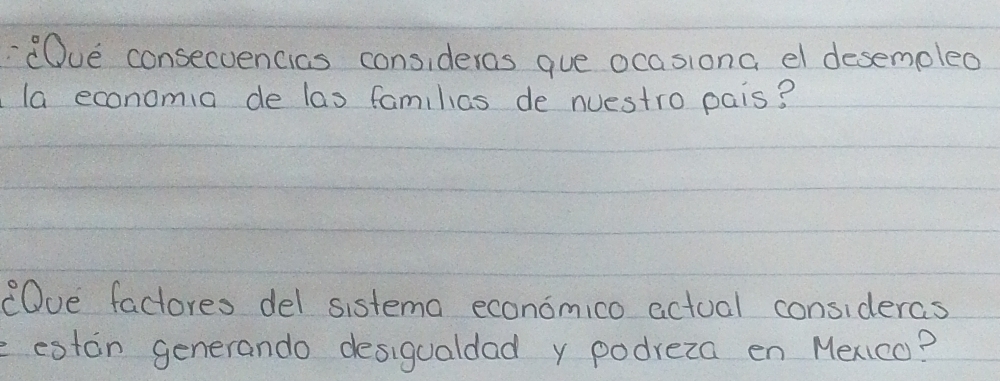 -¿Qué consecuencias consideras que ocasiona el desempleo
la economia de las familias de nuestro pais?
¿Qué factores del sistema económico actual consideras
están generando desigualdad y podreza en Mexico?